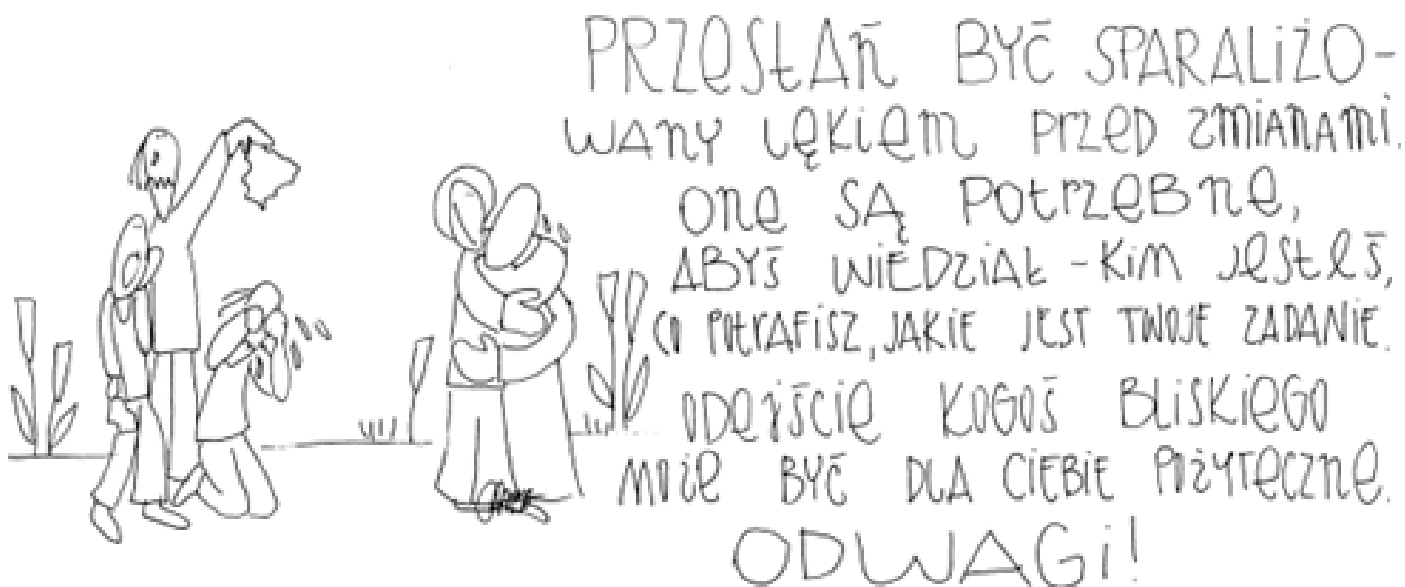 PRZESŁAŃ BYĆ SPARALIŻO-
WANY LĘKIEM PRZED ZMIANAMI.
ONE SĄ POTRZEBNE,
ABYŚ WIEDZIAŁ - KIM JESTEŚ,
CO POTRAFISZ, JAKIE JEST TWOJE ZADANIE.
ODEJŚCIE KOGOŚ BLISKIEGO
MOŻE BYĆ DLA CIEBIE POŻYTECZNE.
ODWAGI!